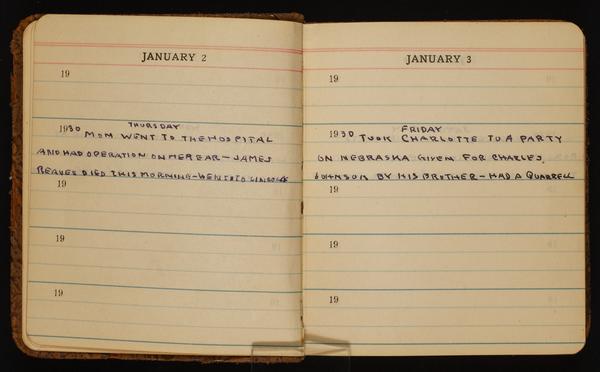 JANUARY 2
19
1930 THURSDAY
MOM WENT TO THE HOSPITAL
AND HAD OPERATION ON HER EAR - JAMES
REAVES DIED THIS MORNING - WENT TO LINCOLN
19
19
19
JANUARY 3
19
1930 FRIDAY
TOOK CHARLOTTE TO A PARTY
ON NEBRASKA GIVEN FOR CHARLES
JOHNSON BY HIS BROTHER - HAD A QUARRELL
19
19
19